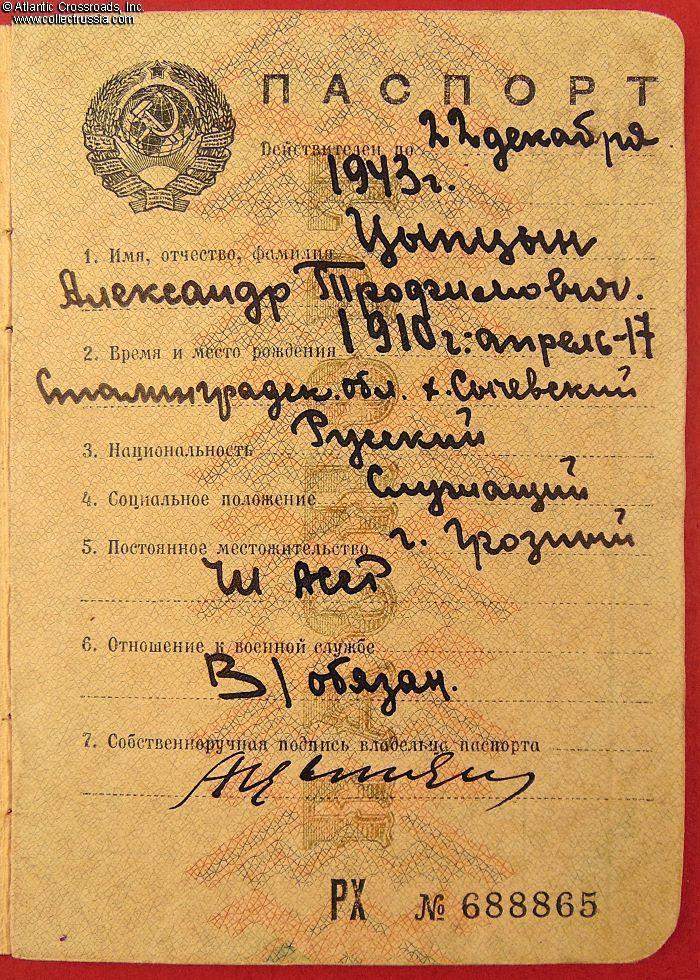 © Atlantic Crossroads, Inc.
www.collectrussia.com
ПАСПОРТ
Действителен по 22 декабря
1943 г.
1. Имя, отчество, фамилия Цыпцын
Александр Трофимович.
2. Время и место рождения 1910 г: апрель-17
Сталинградск. обл. х. Сычевский
3. Национальность Русский
4. Социальное положение Служащий
5. Постоянное местожительство г. Грозный
ЧИ АССР
6. Отношение к военной службе
В/обязан.
7. Собственноручная подпись владельца паспорта
РХ № 688865